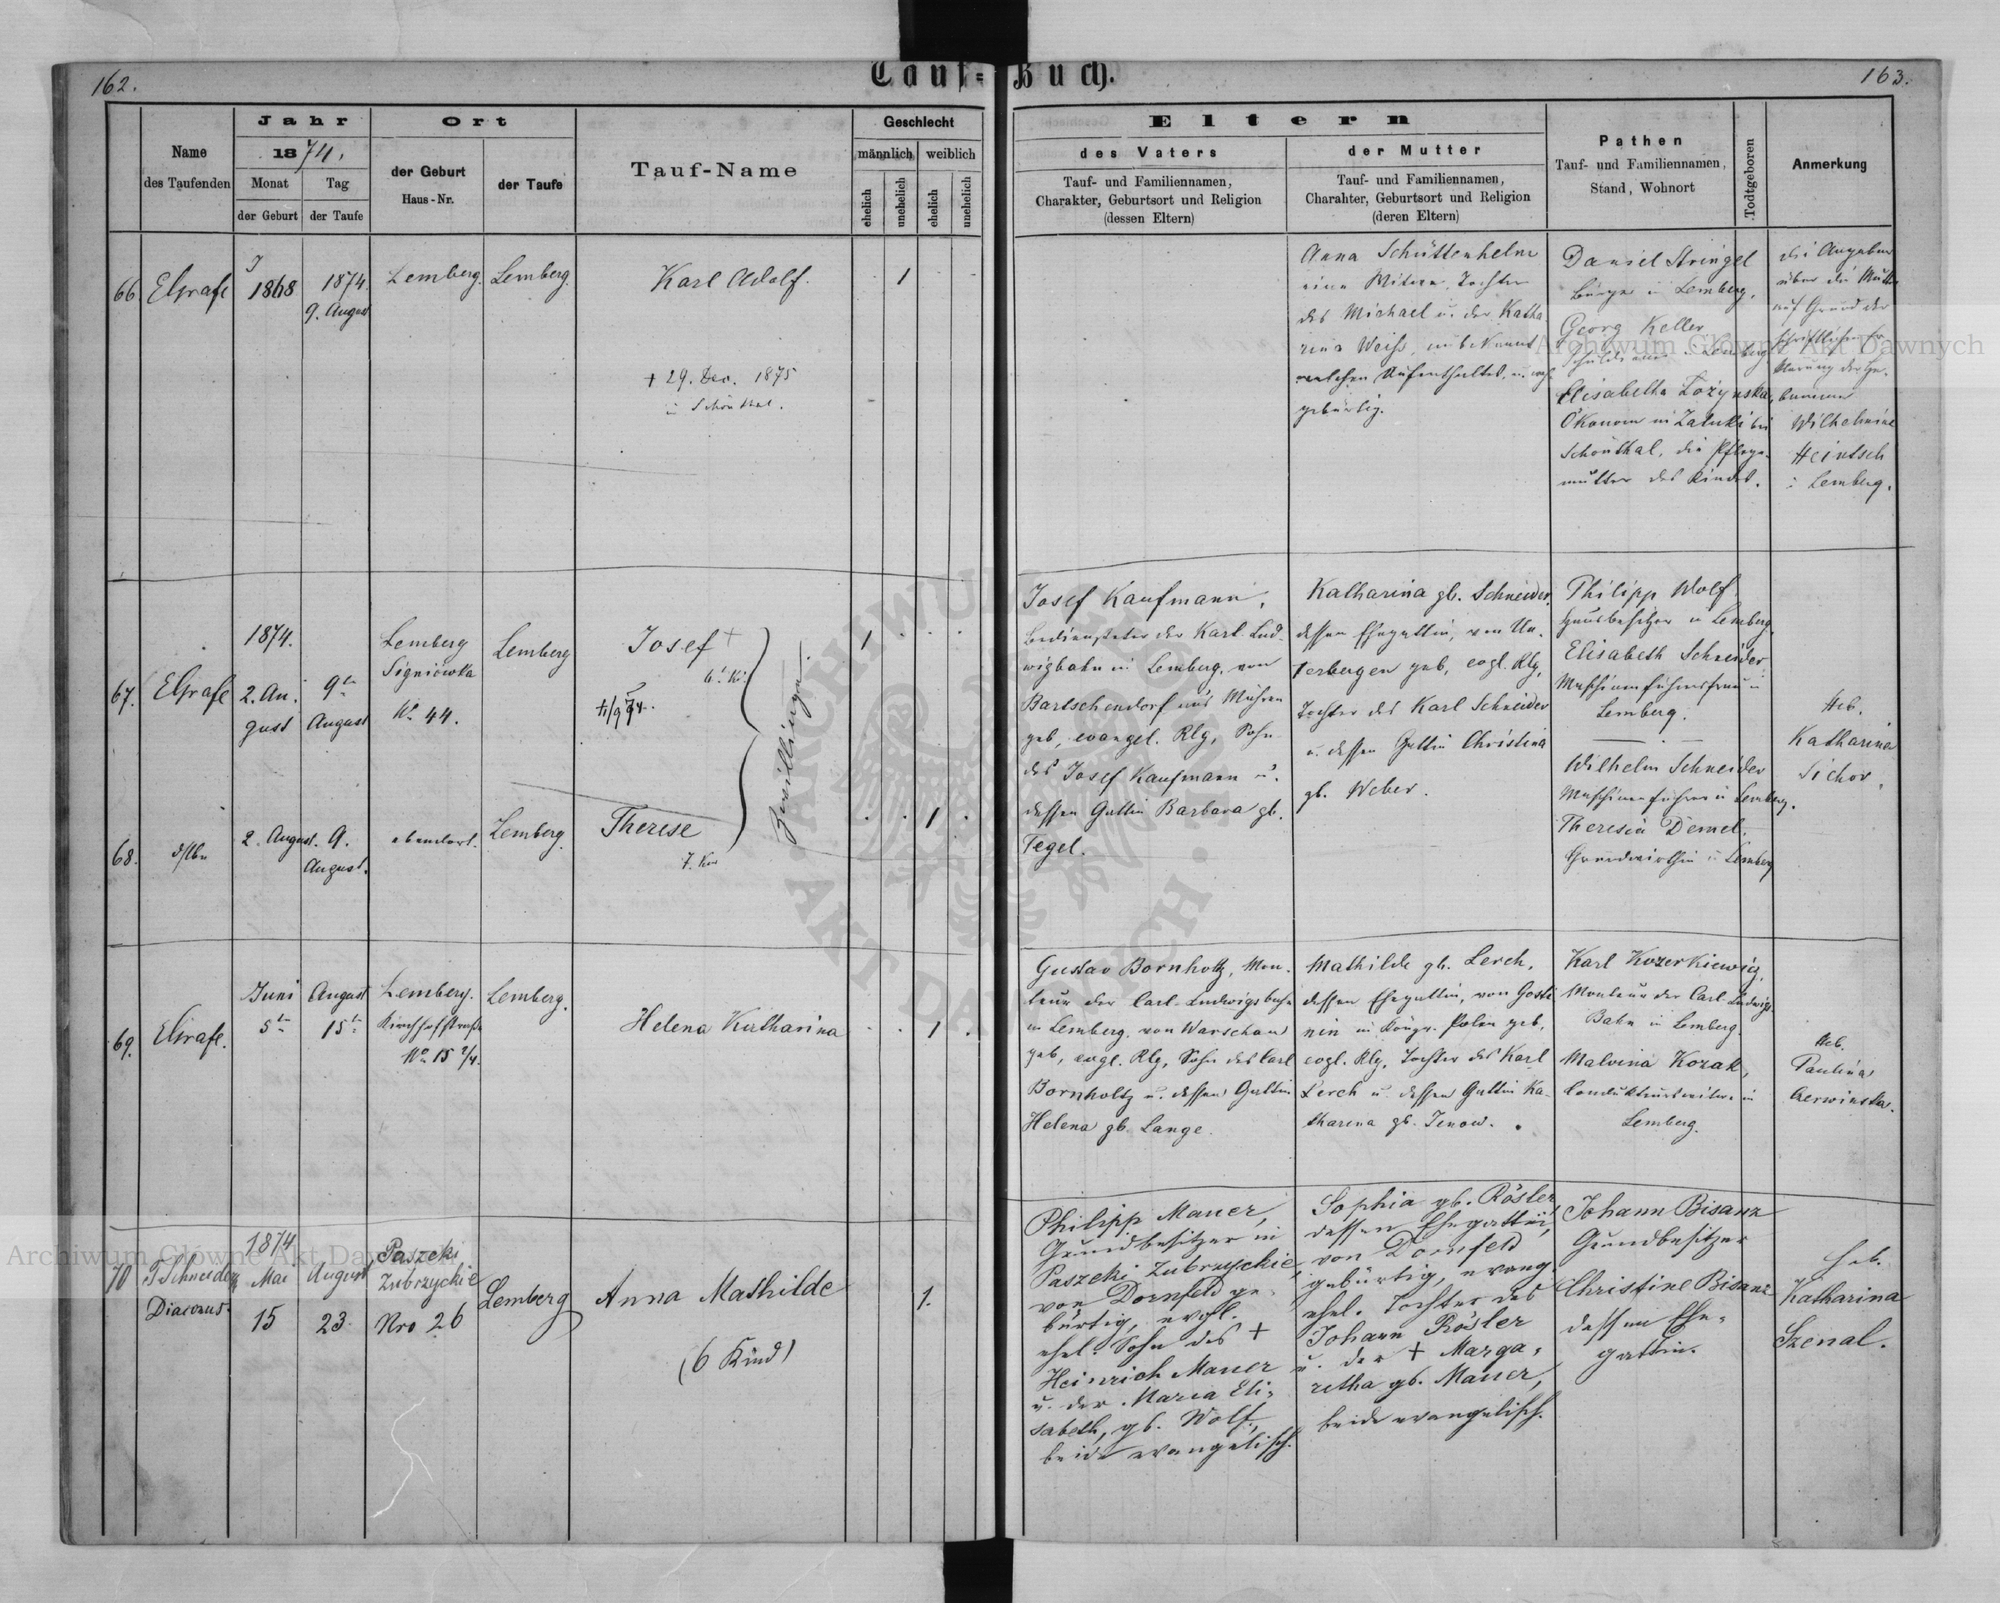 162.
Tauf-Buch.
163.
Name
des Taufenden
Jahr
1874.
Monat
der Geburt
Tag
der Taufe
Ort
der Geburt
Haus-Nr.
der Taufe
Tauf-Name
Geschlecht
männlich
weiblich
ehelich
unehelich
ehelich
unehelich
Eltern
des Vaters
Tauf- und Familiennamen,
Charakter, Geburtsort und Religion
(dessen Eltern)
der Mutter
Tauf- und Familiennamen,
Charahter, Geburtsort und Religion
(deren Eltern)
Pathen
Tauf- und Familiennamen,
Stand, Wohnort
Todtgeboren
Anmerkung
66
Elgrafe
1868
1874.
9. August
Lemberg.
Lemberg.
Karl Adolf.
+ 29. Dec. 1875
in Schönthal.
1
Anna Schüttenhelm
eine Witwe, Tochter
des Michael u. der Katha
rina Weiß, unbekannt
welchen Aufenthaltes, u. wo
gebürtig.
Daniel Stringel
Bürger in Lemberg,
Georg Keller
in Lemberg
Elisabetha Lozynska,
Ökonom in Zaluki bei
Schönthal, die Pflege-
mutter des Kindes.
die Angaben
über die Mutter
auf Grund der
schriftlichen Er
klärung der He-
bamme
Wilhelmine
Heintsch
in Lemberg.
67.
Elgrafe
1874.
2. Au.
gust
9te
August
Lemberg
Signiówka
No 44.
Lemberg
Josef +
6. Ki
Zwillinge.
1
Josef Kaufmann,
Bediensteter der Karl Lud-
wigbahn in Lemberg, von
Bartschendorf aus Mähren
geb, evangel. Rlg, Sohn
des Josef Kaufmann u.
dessen Gattin Barbara gb.
Tegel.
Katharina gb. Schneider,
dessen Ehegattin, von Un-
terbergen geb, evgl. Rlg,
Tochter des Karl Schneider
u. dessen Gattin Christina
gb. Weber.
Philipp Wolf
Hausbesitzer in Lemberg,
Elisabeth Schneider
Maschinenführersfrau in
Lemberg.
Wilhelm Schneider
Maschinenführer in Lemberg.
Theresia Demel.
Grundwirthin in Lemberg
Heb.
Katharina
Sichor.
68.
dslbe
2. August.
9.
August.
ebendort.
Lemberg.
Therese
7. Kind
1
69.
Elgrafe.
Juni
5te
August
15te
Lemberg.
Kirchhofstraße
No 15 2/4.
Lemberg.
Helena Katharina
1
Gustav Bornholtz, Mon-
teur der Carl-Ludwigsbahn
in Lemberg, von Warschau
geb, evgl. Rlg, Sohn des Carl
Bornholtz u. dessen Gattin
Helena gb. Lange.
Mathilde gb. Lerch,
dessen Ehegattin, von Gosti
nin in Köngr. Polen geb,
evgl. Rlg, Tochter des Karl
Lerch u. dessen Gattin Ka-
tharina gb. Jenow.
Karl Kozerkiewig,
Monteur der Carl-Ludwigs
Bahn in Lemberg.
Malvina Kozak,
in
Lemberg.
Heb.
Paulina
Czerwinska.
70
T Schneider
Diaconus.
1874
Mai
15
August
23
Paszeki
Zubrzyckie
Nro 26
Lemberg
Anna Mathilde
(6 Kind)
1.
Philipp Mauer,
Grundbesitzer in
Paszeki Zubrzyckie,
von Dornfeld ge-
bürtig, evgl.
ehel. Sohn des +
Heinrich Mauer
u. der Maria Eli-
sabeth, gb. Wolf,
beide evangelisch.
Sophia gb. Rösler
dessen Ehegattin,
von Dornfeld
gebürtig, evang.
ehel. Tochter des
Johann Rösler
u. der + Marga-
retha gb. Mauer,
beide evangelisch.
Johann Bisanz
Grundbesitzer
Christine Bisanz
dessen Ehe-
gattin.
Heb.
Katharina
Szenal.
Archiwum Główne Akt Dawnych
Archiwum Główne Akt Dawnych